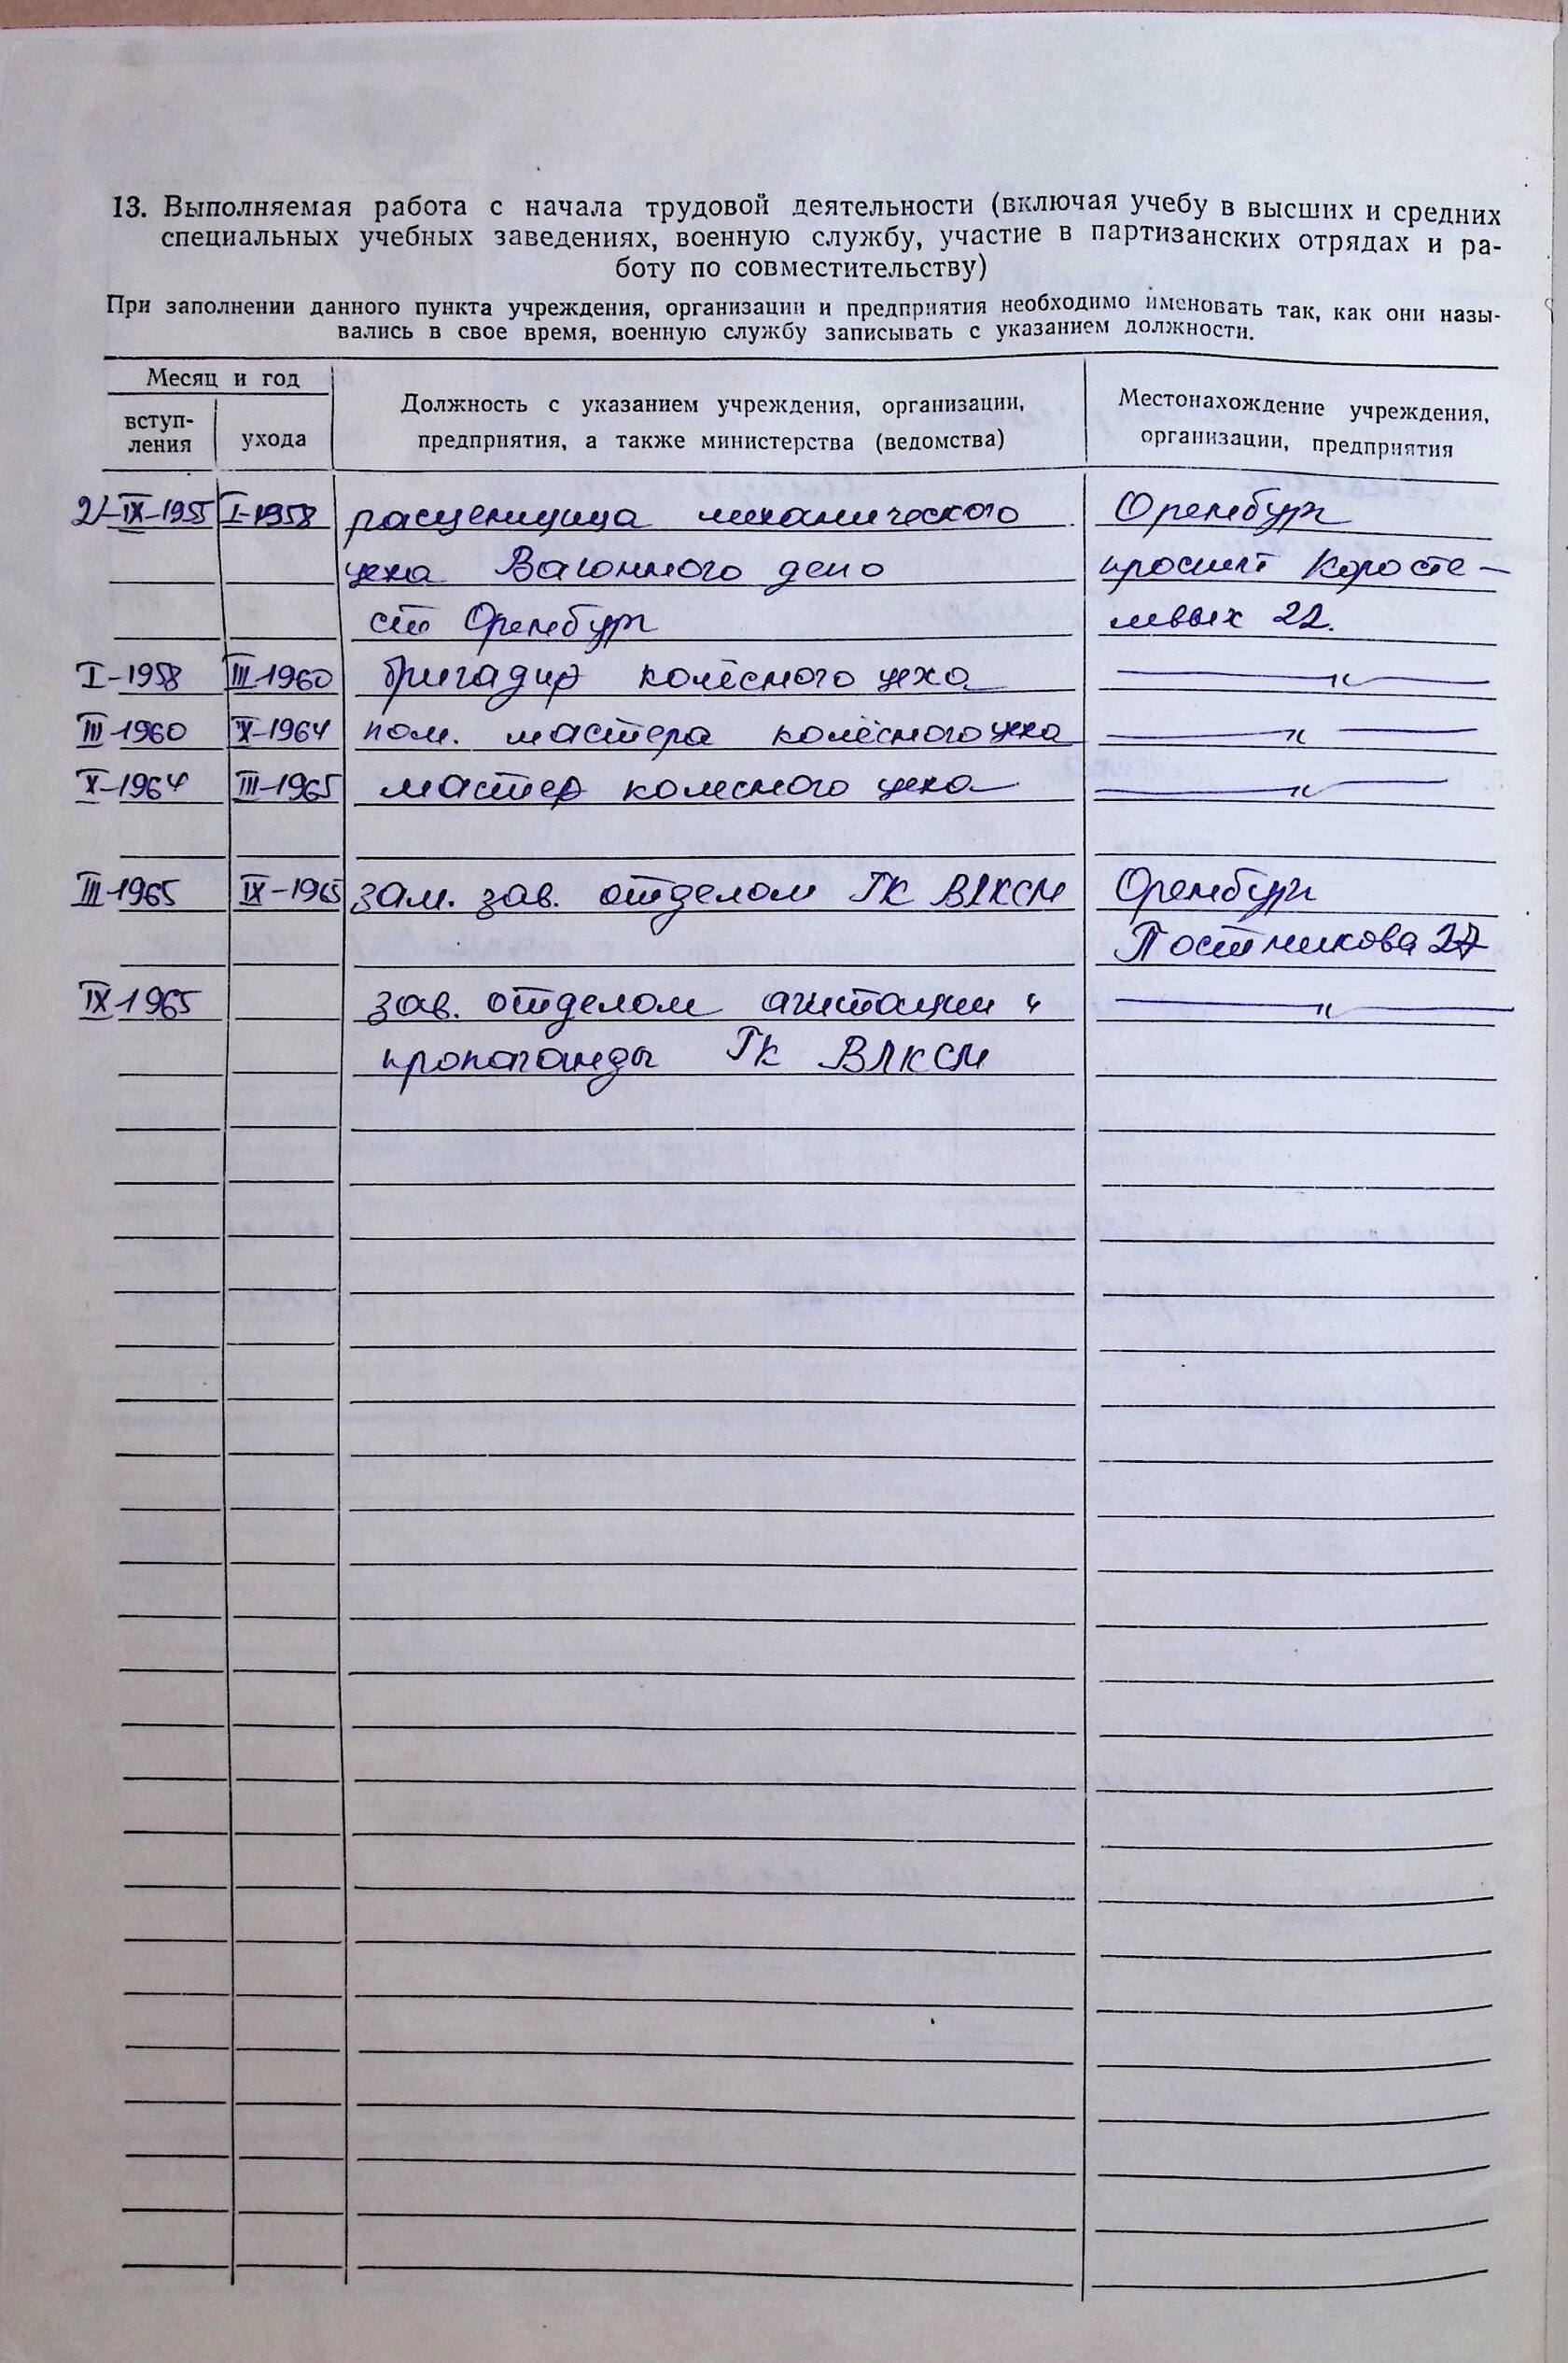 13. Выполняемая работа с начала трудовой деятельности (включая учебу в высших и средних
специальных учебных заведениях, военную службу, участие в партизанских отрядах и ра-
боту по совместительству)
При заполнении данного пункта учреждения, организации и предприятия необходимо именовать так, как они назы-
вались в свое время, военную службу записывать с указанием должности.
Месяц и год
вступ-
ления
ухода
Должность с указанием учреждения, организации,
предприятия, а также министерства (ведомства)
Местонахождение учреждения,
организации, предприятия
IX-1955 I-1958 расценщица механического Оренбург
цеха Вагонного депо проспект Коросте-
ст Оренбург левых 22.
I-1958 III-1960 бригадир колёсного цеха —"—
III-1960 X-1964 пом. мастера колёсного цеха —"—
X-1964 III-1965 мастер колесного цеха —"—
III-1965 IX-1965 зам. зав. отделом ГК ВЛКСМ Оренбург
Постникова 27
IX-1965 зав. отделом агитации и —"—
пропаганды ГК ВЛКСМ